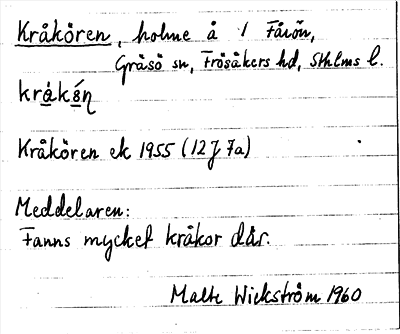 Kråkören, holme å / Fårön,
Gräsö sn, Frösåkers hd, Sthlms l.
kråkö́ŋ
Kråkören ek 1955 (12J 7a)
Meddelaren:
Fanns mycket kråkor där.
Malte Wickström 1960